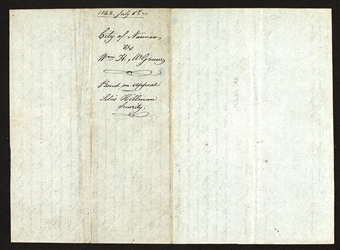 1842 July 5th
City of Nauvoo
vs
Wm H. McGraw
Bond on Appeal
Silas Hillman
surety.